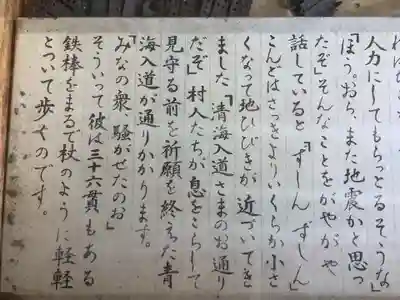 人力にしてもらっとるそうな」
「ほう。おら、また地震かと思っ
たぞ」そんなことをがやがや
話していると「ずしん ずしん」
こんどはさっきよりいくらか小さ
くなって地ひびきが近づいてき
ました。「清海入道さまのお通り
だぞ」村人たちが息をこらして
見守る前を祈願を終えた青
海入道が通りかかります。
「みなの衆、騒がせたのお」
そういって彼は三十六貫もある
鉄棒をまるで杖のように軽軽
とついて歩くのです。